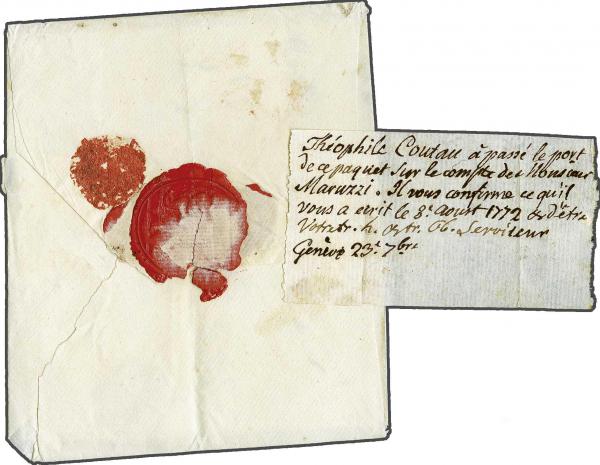 Théophile Coutau à passé le port
de ce paquet sur le compte de Monsieur
Maruzzi. Il vous confirme ce qu'il
vous a ecrit le 8.e Aout 1772 & d'être
Votre tr. h. & tr. Ob. Serviteur
Genève 23.e 7bre